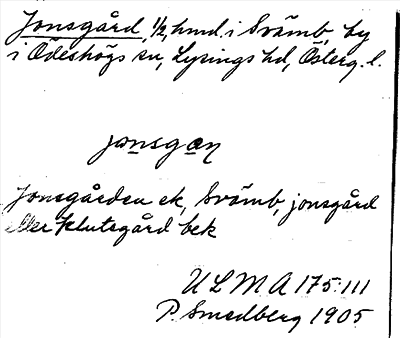 Jonsgård, 1/2, hmd. i Svämb, by
i Ödeshögs sn, Lysings hd, Österg. l.
jonsgan
Jonsgården ek, Svämb, jonsgård
eller Klutsgård bek
ULMA 175:111
P. Smedberg 1905